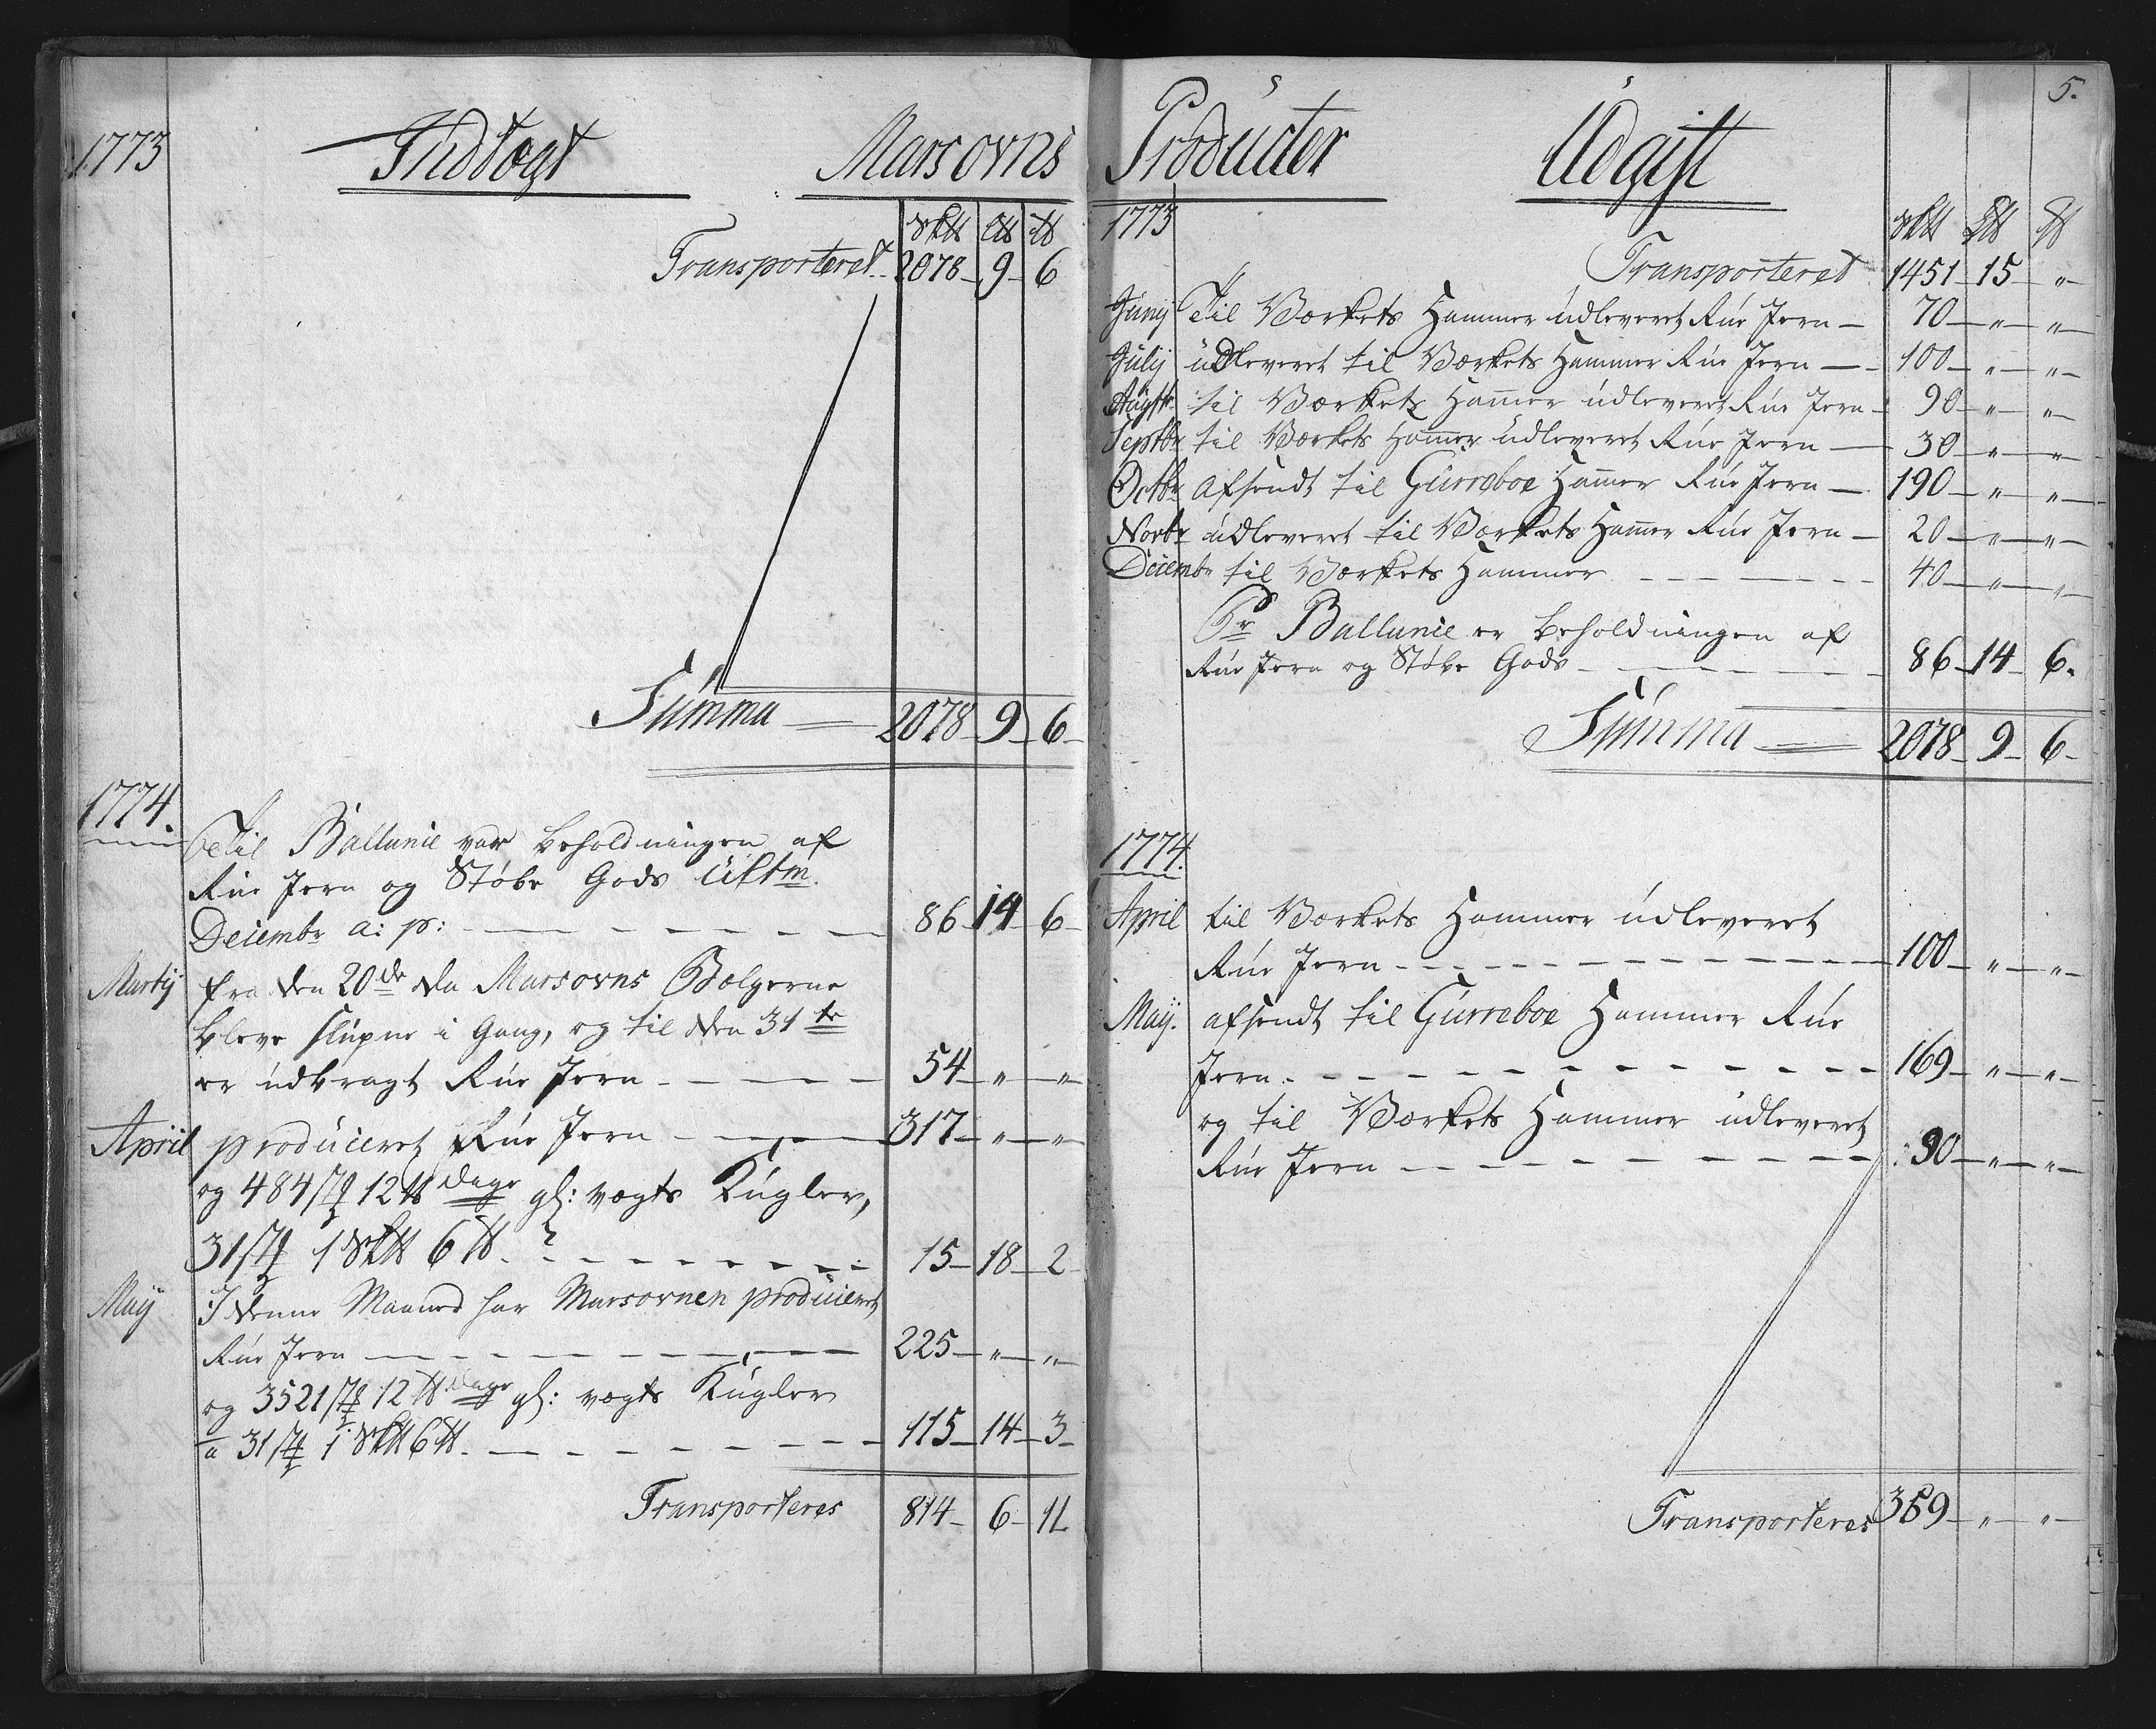 1773 Indtægt Marsovns
Sk℔ L℔ ℔
Transporteret 2078 9 6
Summa 2078 9 6
1774.
Til Ballance var Beholdningen af
Rue Jern og Støbe Gods ultm.
Decembr a: p: 86 14 6
Martij fra den 20de da Marsovns Bælgerne
bleve slupne i Gang, og til den 31te
er udbragt Rue Jern 54 " "
April produceret Rue Jern 317 " "
og 484 12 ℔ dags gl: vægts Kugler,
31 1 Sk℔ 6 ℔. 15 18 2
Maij I denne Maaned har Marsovnen produceret
Rue Jern 225 " "
og 3521 12 ℔ dags gl: vægts Kugler
a 31 1 Sk℔ 6 ℔. 115 14 3
Transporteres 814 6 11
5.
Producter Udgift
1773 Sk℔ L℔ ℔
Transporteret 1451 15 "
Junij Til Værkets Hammer udleveret Rue Jern 70 " "
Julij udleveret til Værkets Hammer Rue Jern 100 " "
Augstj til Værkets Ham̅er udleveret Rue Jern 90 " "
Septbr til Værkets Ham̅er udleveret Rue Jern 30 " "
Octbr afsendt til Gurreboe Ham̅er Rue Jern 190 " "
Novbr udleveret til Værkets Ham̅er Rue Jern 20 " "
Decembr til Værkets Hammer 40 " "
Pr Ballance er Beholdningen af
Rue Jern og Støbe Gods 86 14 6.
Summa 2078 9 6
1774.
April til Værkets Hammer udleveret
Rue Jern 100 " "
Maij. afsendt til Gurreboe Hammer Rue
Jern. 169 " "
og til Værkets Hammer udleveret
Rue Jern 90 " "
Transporteres 359 " "